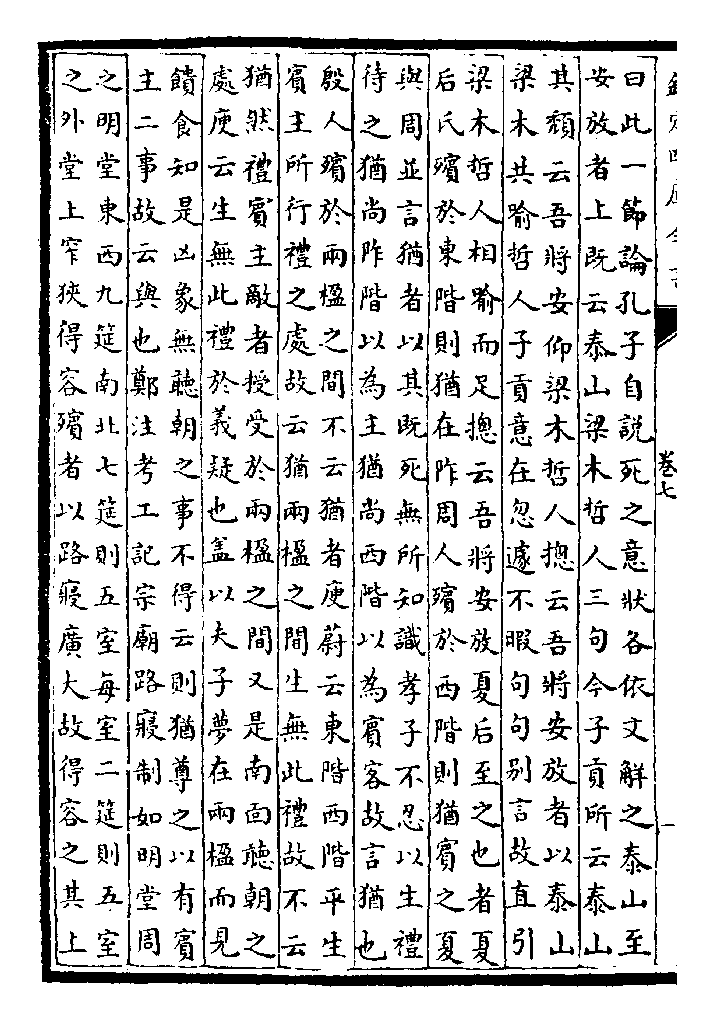 欽定四庫全書
卷七
曰此一節論孔子自說死之意狀各依文解之泰山至
安放者上既云泰山梁木哲人三句今子貢所云泰山
其頽云吾將安仰梁木哲人摠云吾將安放者以泰山
梁木共喻哲人子貢意在忽遽不暇句句别言故直引
梁木哲人相喻而足摠云吾將安放夏后至之也者夏
后氏殯於東階則猶在阼周人殯於西階則猶賓之夏
與周並言猶者以其既死無所知識孝子不忍以生禮
待之猶尚阼階以為主猶尚西階以為賓客故言猶也
殷人殯於兩楹之間不云猶者庾蔚云東階西階平生
賓主所行禮之處故云猶兩楹之間生無此禮故不云
猶然禮賓主敵者授受於兩楹之間又是南面聽朝之
處庾云生無此禮於義疑也葢以夫子夢在兩楹而見
饋食知是凶象無聽朝之事不得云則猶尊之以有賓
主二事故云與也鄭注考工記宗廟路寢制如明堂周
之明堂東西九筵南北七筵則五室每室二筵則五室
之外堂上窄狹得容殯者以路寢廣大故得容之其上